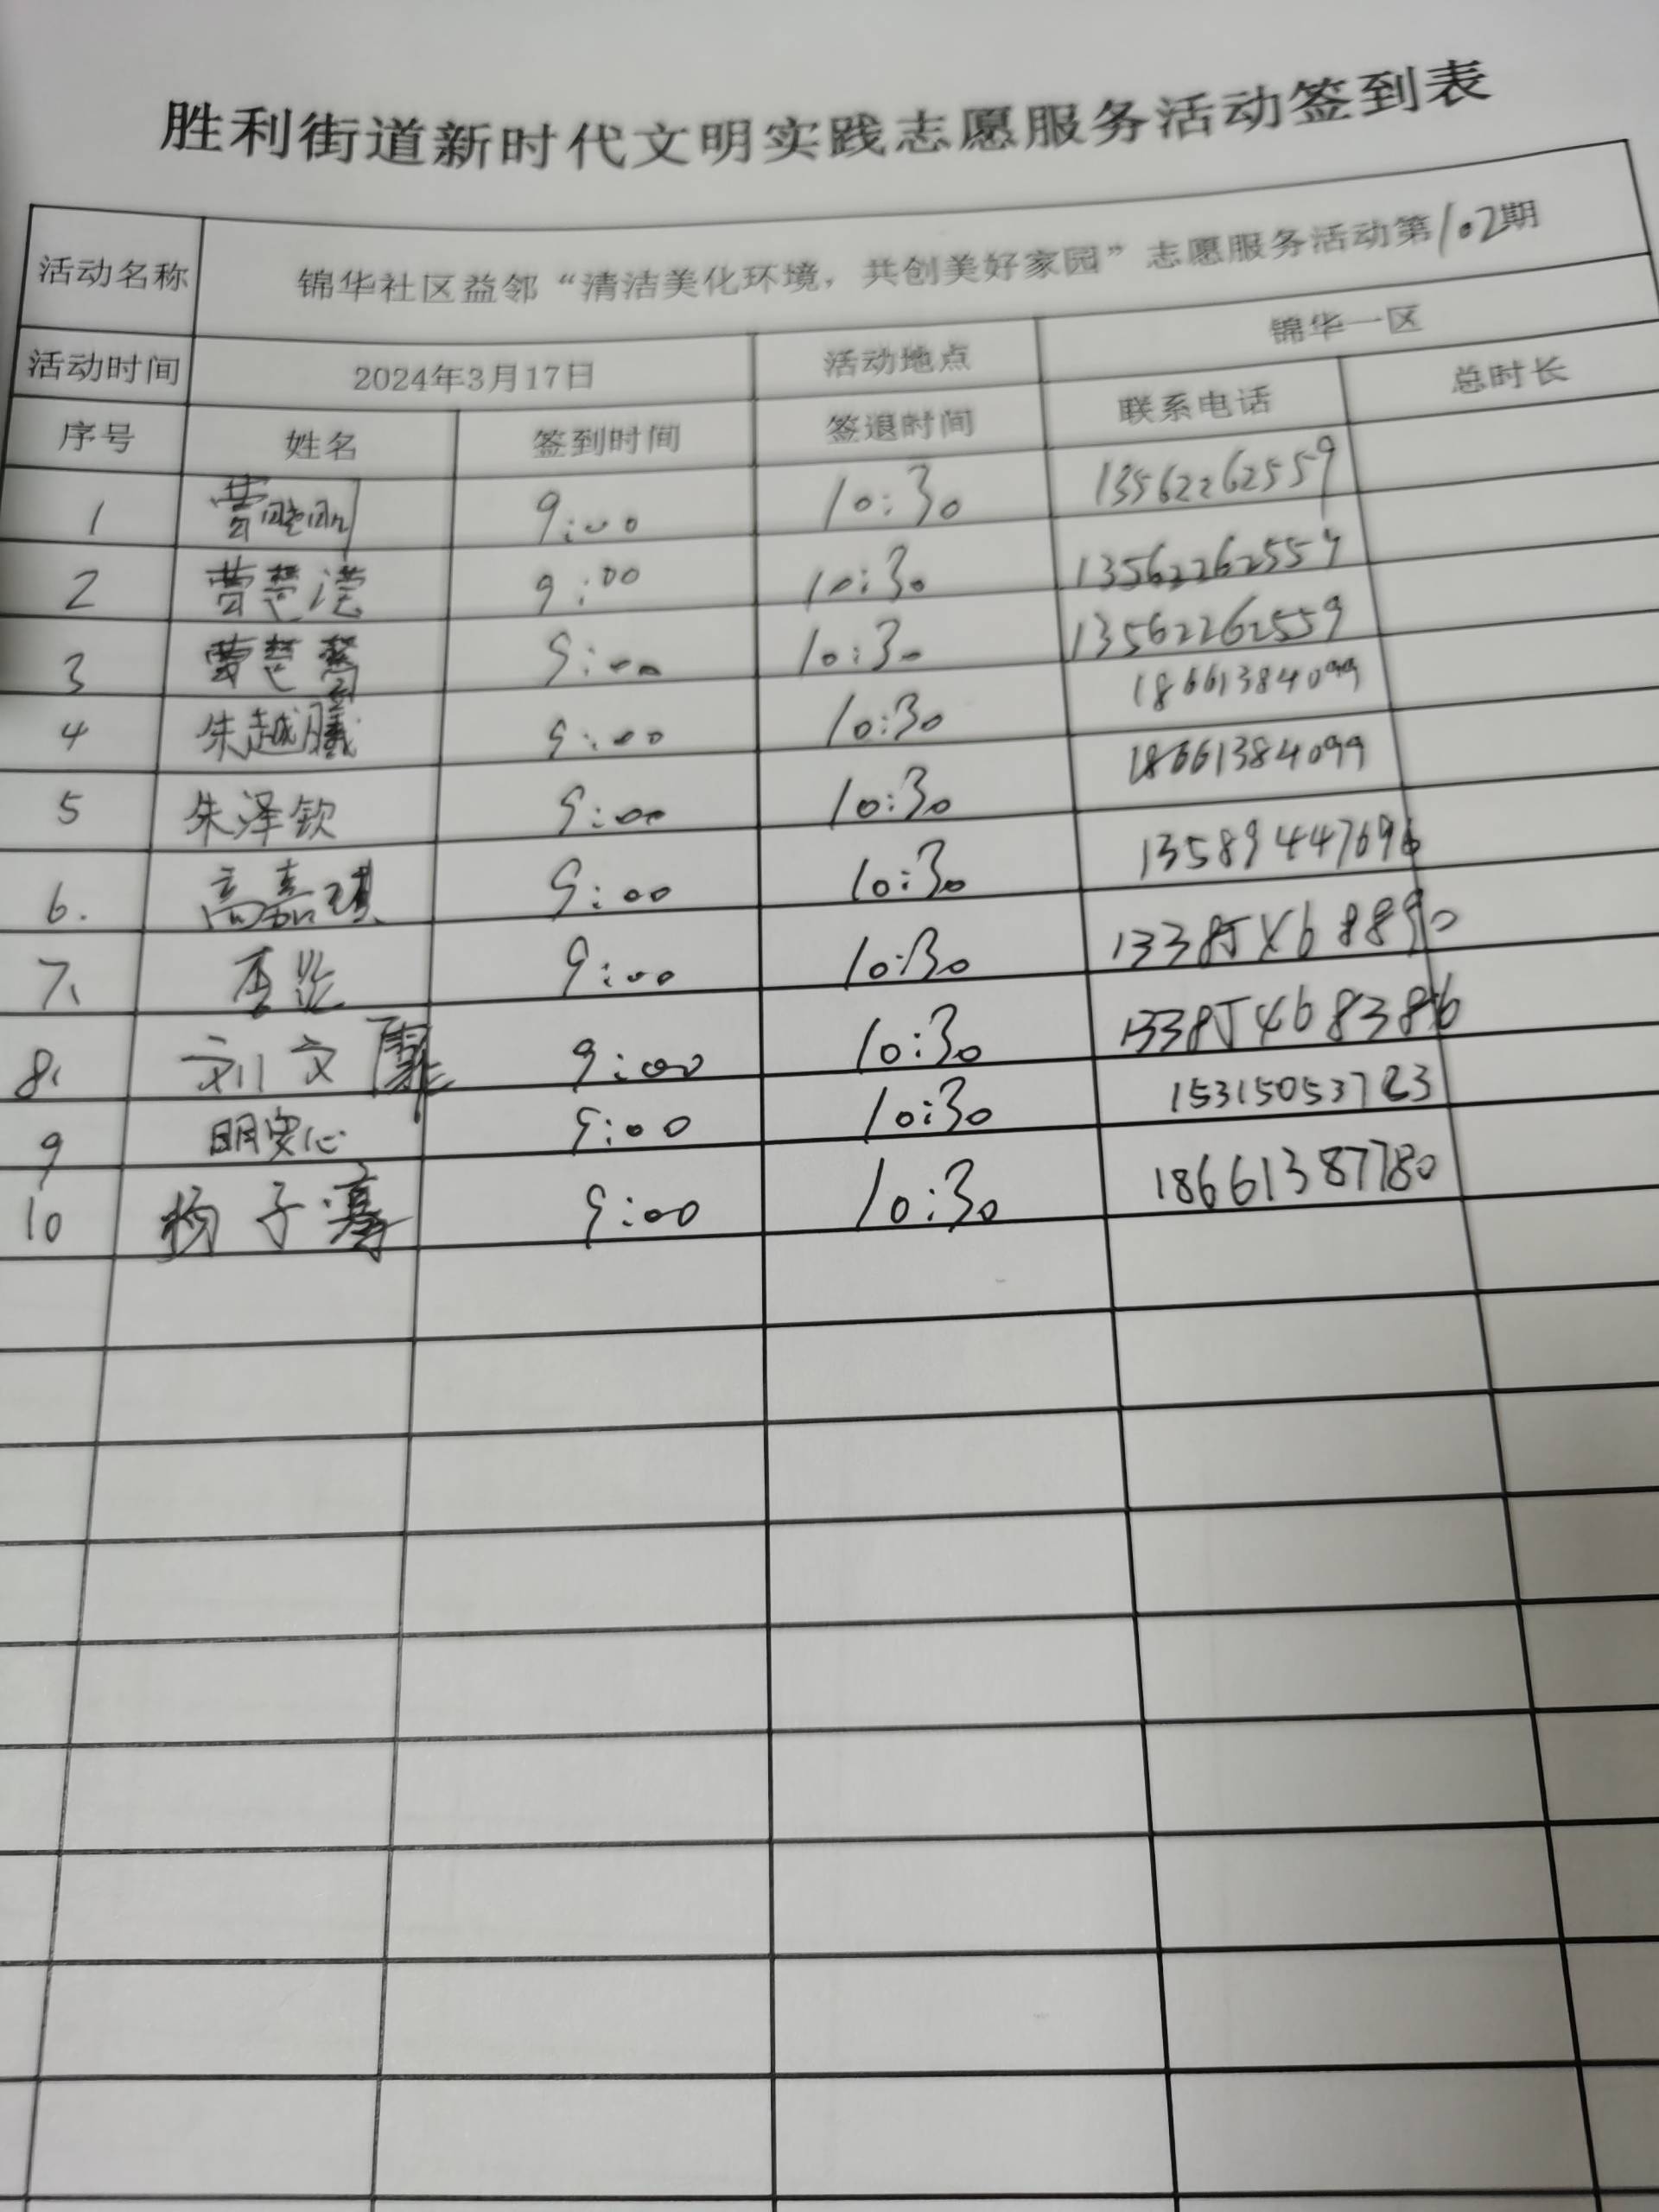 胜利街道新时代文明实践志愿服务活动签到表
活动名称 锦华社区益邻“清洁美化环境，共创美好家园”志愿服务活动第102期
活动时间 2024年3月17日 活动地点 锦华一区
序号 姓名 签到时间 签退时间 联系电话 总时长
1 9:00 10:30 13562262559
2 曹慧滢 9:00 10:30 13562262559
3 曹慧馨 9:00 10:30 13562262559
4 朱越曦 9:00 10:30 18661384099
5 朱泽钦 9:00 10:30 18661384099
6. 高嘉琪 9:00 10:30 13589447696
7、 9:00 10:30
8、 刘文 9:00 10:30
9 明安心 9:00 10:30 15315053723
10 杨子 9:00 10:30 18661387780